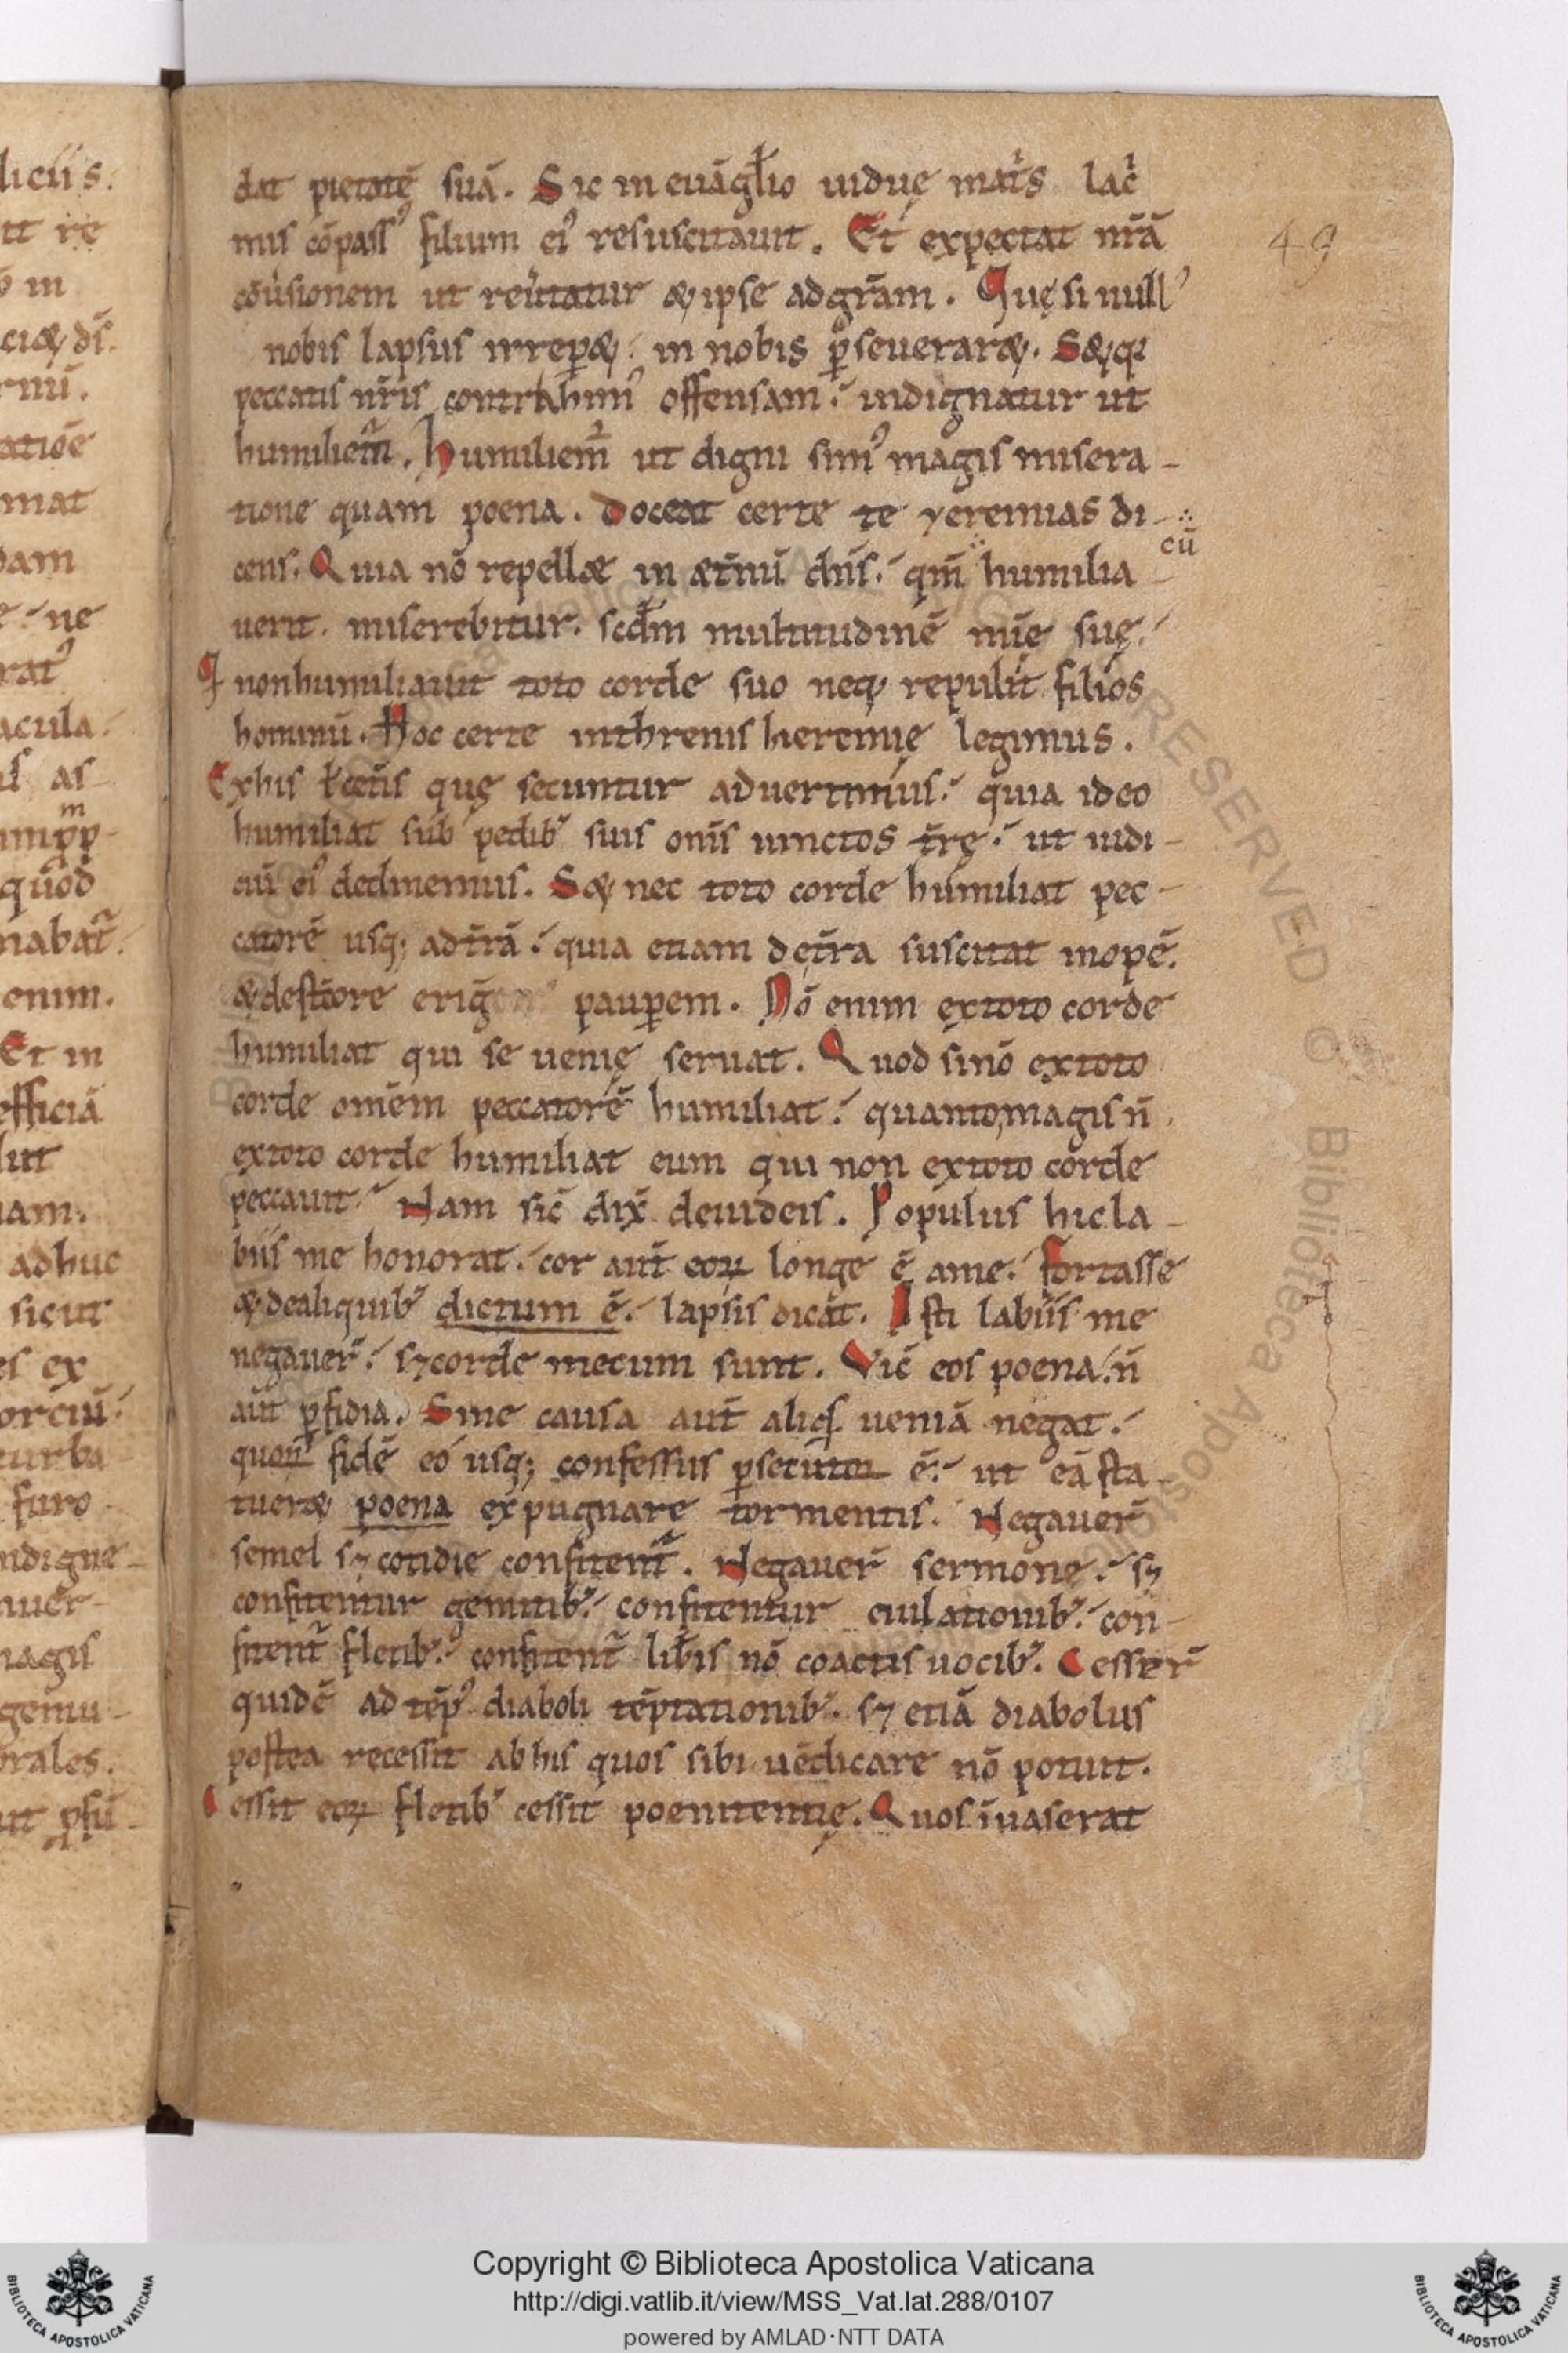 dat pietatē suā. Sic in euāgƚio uidue matͥs lacͥ
mis cōpassꝰ filium eiꝰ resuscitauit. Et expectat nr̄ā
cōu̓sionem ut reu̓tatur & ipse ad gr̄am. Quę si nullꝰ
nobis lapsus irrep&: in nobis p̱seuerar&. S& q̇
peccatis nr̄is contrahimꝰ offensam: indignatur ut
humiliem̃. humiliem̃ ut digni simꝰ magis misera-
tione quam poena. Doceat certe te yeremias di-
cens. Quia nō repellæ in æt̄nū dn̄s: qm̄ humilia
cū
uerit. miserebitur. scd̄m multitudinē mi̅ę suę:
Q non humiliauit toto corde suo neq; repulit filios
hominū. Hoc certe in threnis hieremię legimus.
Ex his & cet̄is quę secuntur aduertimus: quia ideo
humiliat sub pedibꝰ suis om̄s uinctos tr̄ę: ut iudi-
ciū eiꝰ declinemus. S& nec toto corde humiliat pec-
catorē usq; ad tr̄ā: quia etiam de tr̄a suscitat inopē.
& de st̄core erig̅ paup̱em. Nō enim ex toto corde
humiliat qui se uenię seruat. Quod si nō ex toto
corde om̄em peccatorē humiliat: quanto magis n̄
ex toto corde humiliat eum qui non ex toto corde
peccauit: Nam sic̄ dix̄ de iudeis. Populus hic la-
biis me honorat: cor aut̄ eoꝝ longe ē a me: fortasse
& de aliquibꝰ dictum ē: lapsis dicāt. Isti labiis me
negauer̄: s; corde mecum sunt. Vic̄ eos poena: n̄
aut̄ p̱fidia. Sine causa aut̄ aliq̇ ueniā negat:
quoꝝ fidē eo usq; confessus p̱secutor ē: ut eā sta-
tuer& poena expugnare tormentis. Negauer̄
semel s; cotidie confitent̃. Negauer̄ sermone: s;
confitentur gemitibꝰ: confitentur eiulationibꝰ: con-
fitent̃ fletibꝰ: confitent̃ lib̄is nō coactis uocibꝰ. Cesser̄
quidē ad tēpꝰ diaboli tēptationibꝰ. s; etiā diabolus
postea recessit ab his quos sibi uēdicare nō potuit.
Cessit eoꝝ fletibꝰ cessit poenitentię. Quos īuaserat
49
Copyright © Biblioteca Apostolica Vaticana
http://digi.vatlib.it/view/MSS_Vat.lat.288/0107
powered by AMLAD·NTT DATA